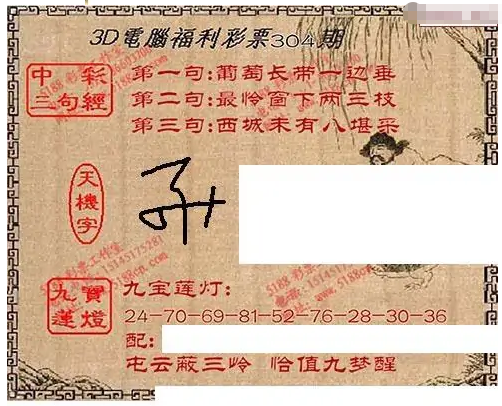 3D電腦福利彩票304期
中彩
三句經
第一句:葡萄长带一边垂
第二句:最怜窗下两三枝
第三句:西城未有八堪采
天機字
5188彩票工作室
15145175281
www.5188cp.com
九寶
蓮燈
九宝莲灯:
24-70-69-81-52-76-28-30-36
配:
屯云蔽三岭 恰值九梦醒